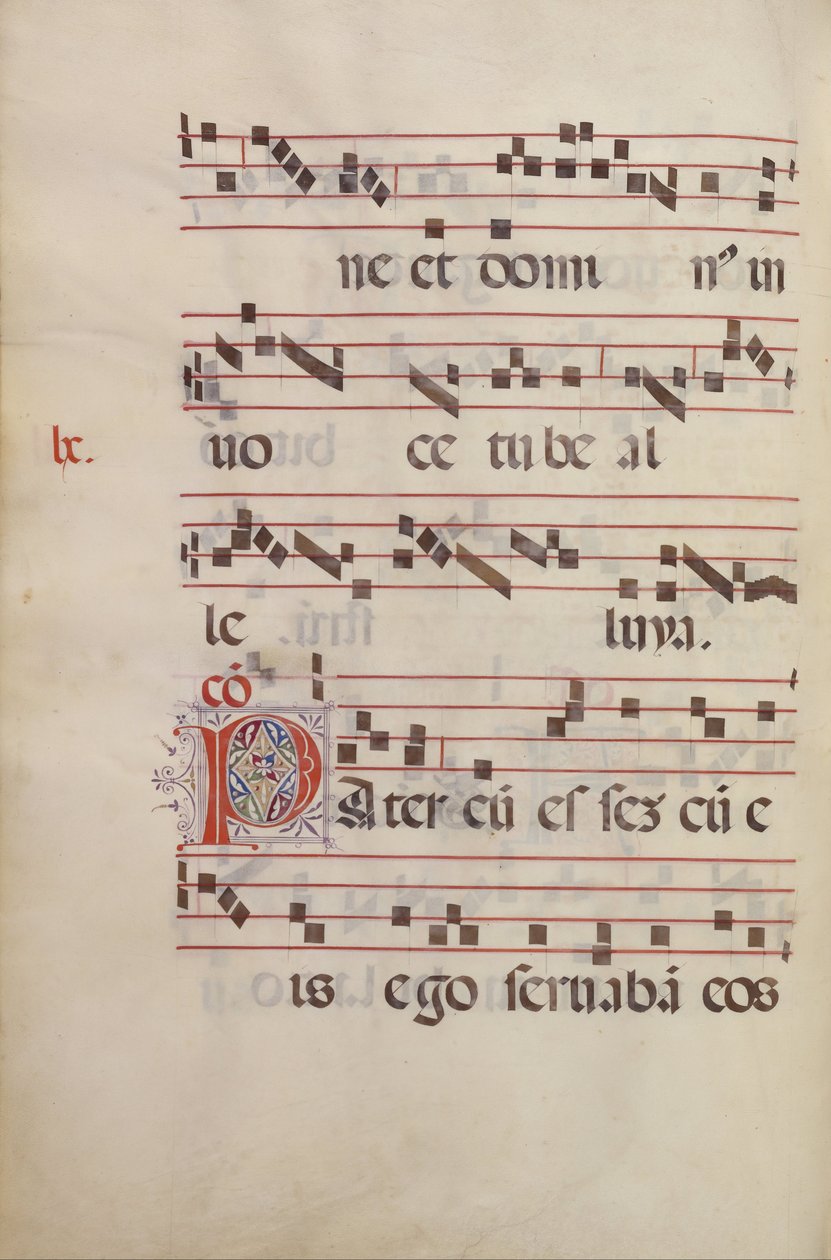 ne et domi nꝰ in
lx.
uo ce tube al
le luya.
cō
PAter cū es sez cū e
is ego seruabā eos